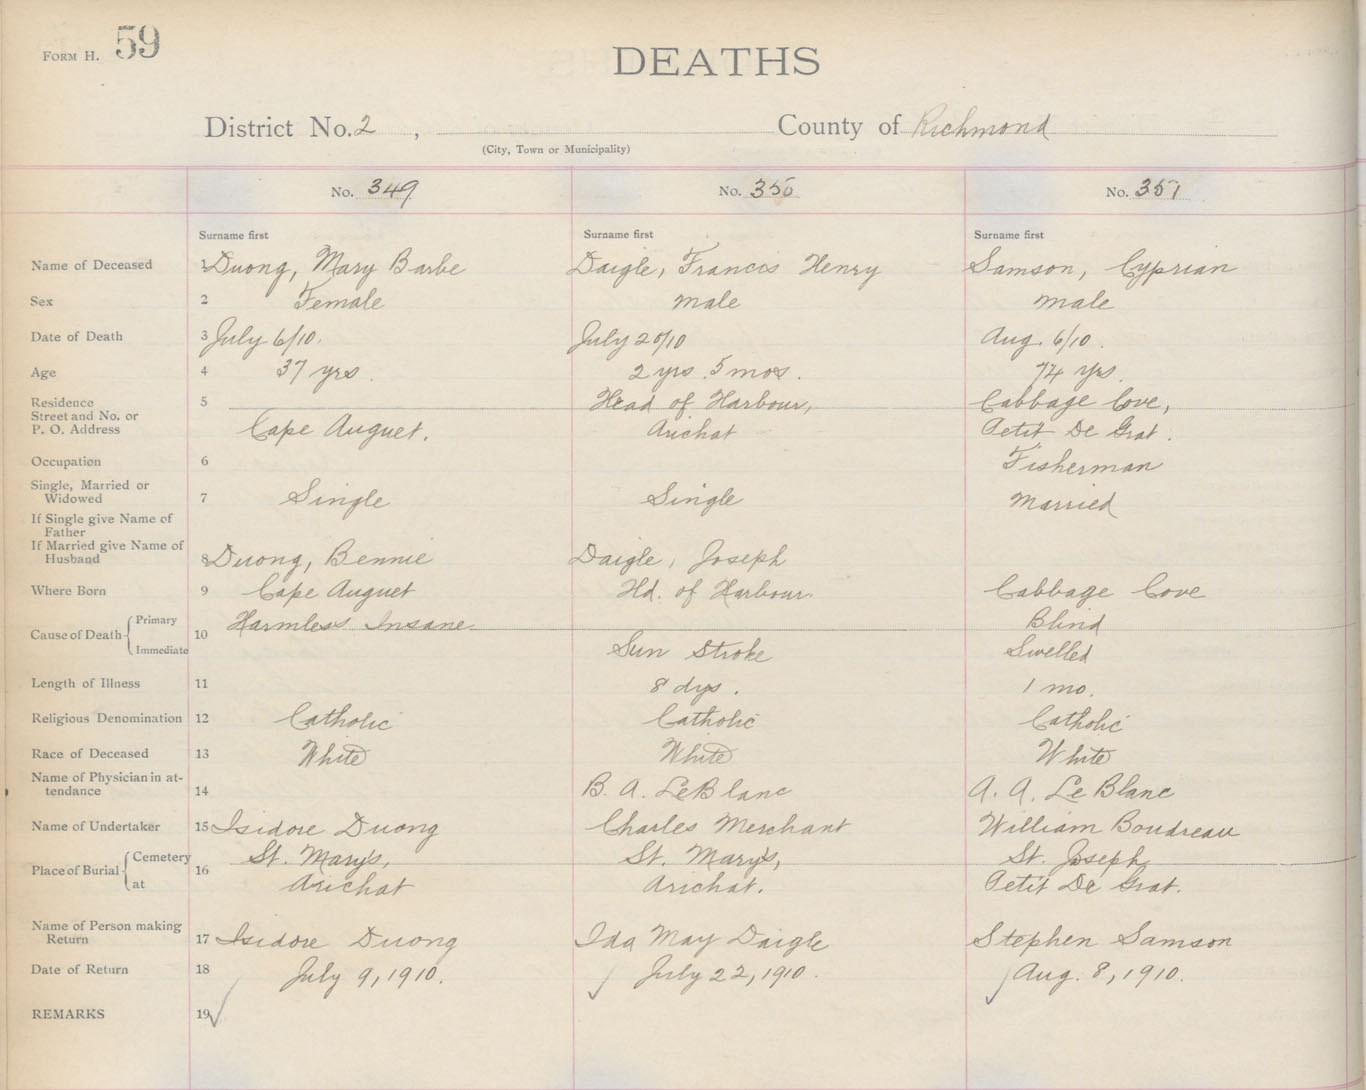 FORM H. 59
DEATHS
District No. 2 , County of Richmond
(City, Town or Municipality)
No. 349 No. 350 No. 351
Surname first Surname first Surname first
Name of Deceased 1 Duong, Mary Barbe Daigle, Francis Henry Samson, Cyprian
Sex 2 Female male male
Date of Death 3 July 6/10. July 20/10 Aug. 6/10.
Age 4 37 yrs. 2 yrs. 5 mos. 74 yrs.
Residence 5 Head of Harbour, Cabbage Cove,
Street and No. or
P. O. Address Cape Auguet. Arichat Petit De Grat.
Occupation 6 Fisherman
Single, Married or
Widowed 7 Single Single Married
If Single give Name of
Father
If Married give Name of
Husband 8 Duong, Bennie Daigle, Joseph
Where Born 9 Cape Auguet Hd. of Harbour. Cabbage Cove
Cause of Death Primary 10 Harmless Insane Blind
Immediate Sun Stroke Swelled
Length of Illness 11 8 dys. 1 mo.
Religious Denomination 12 Catholic Catholic Catholic
Race of Deceased 13 White White White
Name of Physician in at-
tendance 14 B. A. LeBlanc A. A. Le Blanc
Name of Undertaker 15 Isidore Duong Charles Merchant William Boudreau
Place of Burial Cemetery 16 St. Mary's, St. Mary's, St. Joseph
at Arichat Arichat. Petit De Grat.
Name of Person making
Return 17 Isidore Duong Ida May Daigle Stephen Samson
Date of Return 18 July 9, 1910. July 22, 1910. Aug. 8, 1910.
REMARKS 19